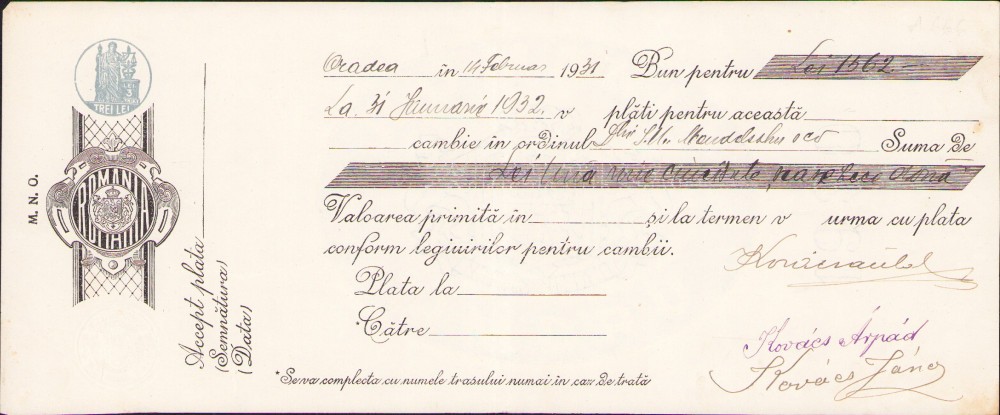 TREI LEI
3
M. N. O.
ROMANIA
Accept plata
(Semnătura)
(Data)
Oradea în 14 Februar 1931 Bun pentru Lei 1562.—
La 31 Januarie 1932. v plăti pentru această
cambie în ordinul S. M. Suma de
Lei una mie cincisute
Valoarea primită în și la termen v urma cu plata
conform legiuirilor pentru cambii.
Plata la
*Către
Kovács Árpád
Kovács János
*Se va complecta cu numele trasului numai în caz de trată